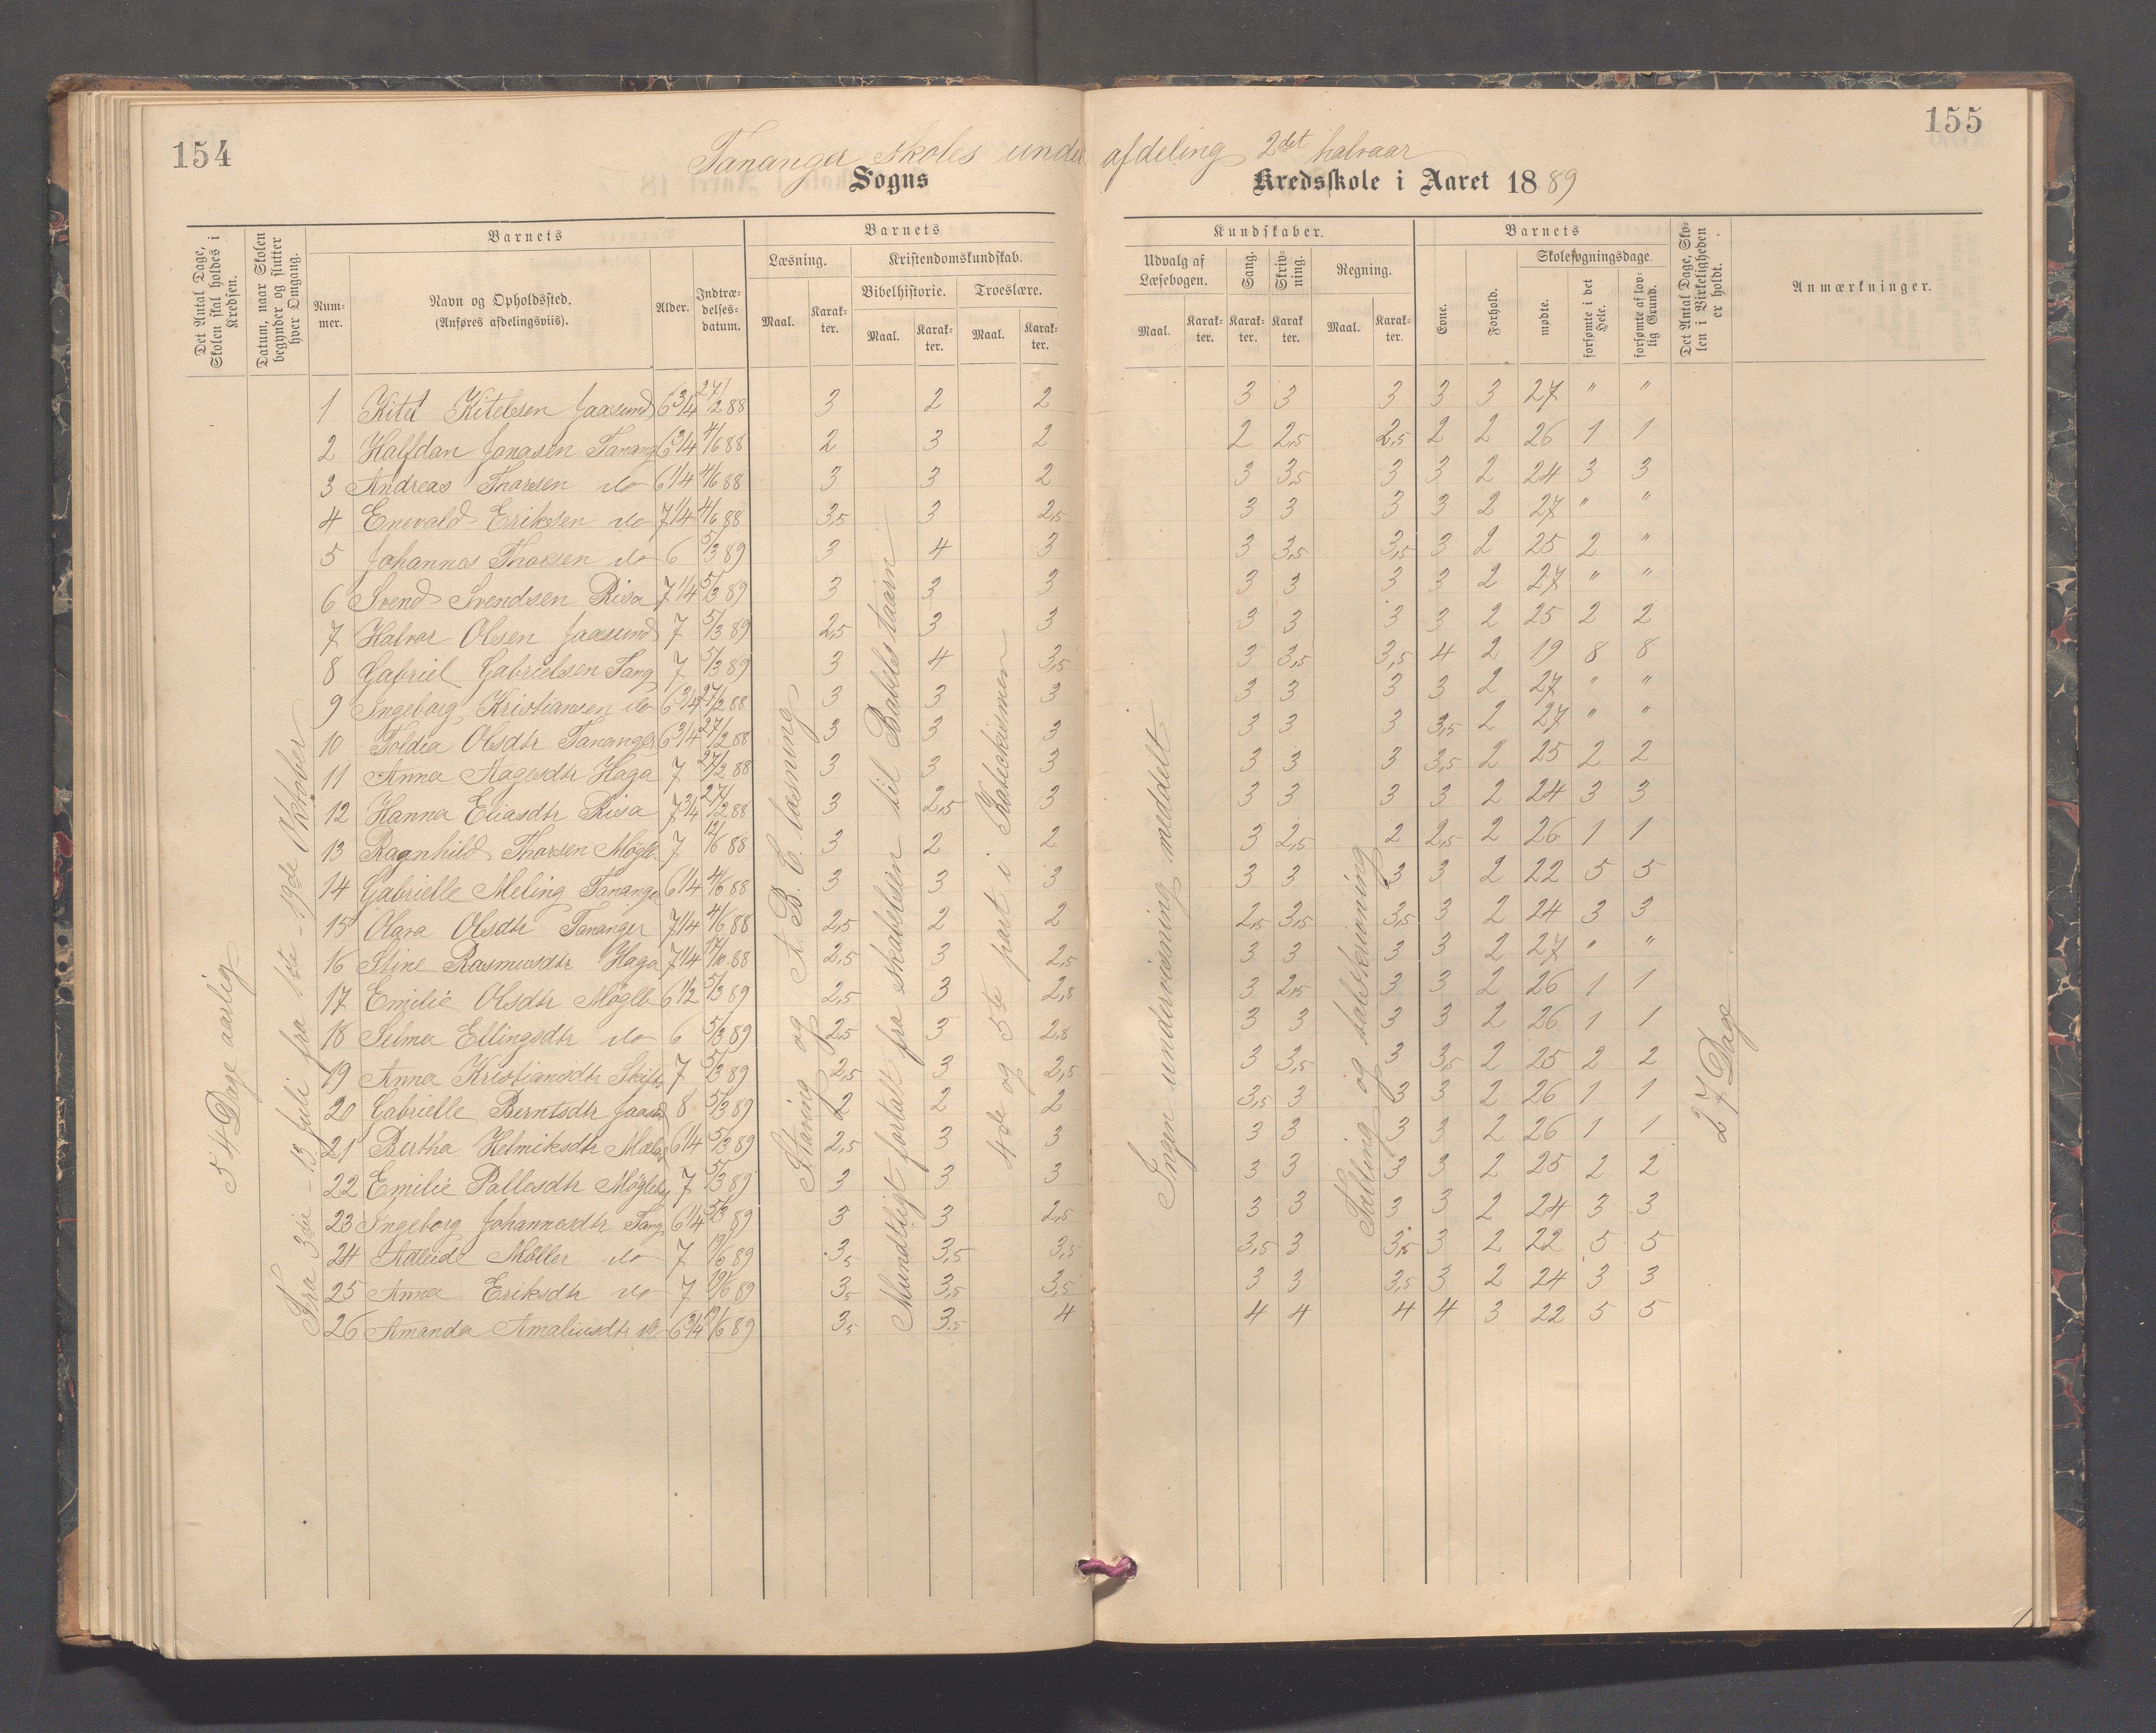 154
155
Tananger skoles under afdeling 2det halvaar
Sogns Kredsskole i Aaret 1889
Det Antal Dage, Skolen skal holdes i Kredsen.
Datum, naar Skolen begynder og slutter hver Omgang.
Barnets
Num-mer.
Navn og Opholdssted. (Anføres afdelingsviis).
Alder.
Indtræ-delses-datum.
Barnets
Læsning.
Maal.
Karak-ter.
Kristendomskundskab.
Bibelhistorie.
Maal.
Karak-ter.
Troeslære.
Maal.
Karak-ter.
Kundskaber.
Udvalg af Læsebogen.
Maal.
Karak-ter.
Sang.
Karak-ter.
Skriv-ning.
Karak ter.
Regning.
Maal.
Karak-ter.
Barnets
Evne.
Forhold.
Skolesøgningsdage.
mødte.
forsømte i det Hele.
forsømte af lov-lig Grund.
Det Antal Dage, Sko-len i Virkeligheden er holdt.
Anmærkninger.
54 Dage aarlig
Fra 3die - 13 Juli fra 1ste - 19de Oktober
Staving og A.B.C. læsning
Mundtligt fortalt fra skabelsen til Babelstaarn
4de og 5te part i Katechismen
Ingen undervisning meddelt
Tælling og talskrivning
27 Dage
1 Kitel Kitelsen Jaasund 6 3/4 27/2 88 3 2 2 3 3 3 3 3 27 " "
2 Halfdan Jonasen Tanang 6 3/4 4/6 88 2 3 2 2 2,5 2,5 2 2 26 1 1
3 Andreas Thorsen do 6 1/4 4/6 88 3 3 2 3 3,5 3 3 2 24 3 3
4 Enevald Eriksen do 7 1/4 4/6 88 3,5 3 2,5 3 3 3 3 2 27 " "
5 Johannes Thorsen do 6 5/3 89 3 4 3 3 3,5 3,5 3 2 25 2 "
6 Svend Svendsen Risa 7 1/4 5/3 89 3 3 3 3 3 3 3 2 27 " "
7 Halvor Olsen Jaasund 7 5/3 89 2,5 3 3 3 3 3 3 2 25 2 2
8 Gabriel Gabrielsen Tang 7 5/3 89 3 4 3,5 3 3,5 3,5 4 2 19 8 8
9 Ingeborg Kristiansen do 6 3/4 27/2 88 3 3 3 3 3 3 3 2 27 " "
10 Toldia Olsdtr Tananger 6 3/4 27/2 88 3 3 3 3 3 3 3,5 2 27 " "
11 Anna Aagesdtr Haga 7 27/2 88 3 3 3 3 3 3 3,5 2 25 2 2
12 Hanna Eliasdtr Risa 7 3/4 27/2 88 3 2,5 3 3 3 3 3 2 24 3 3
13 Ragnhild Thorsen Møgle 7 12/6 88 3 2 2 3 2,5 2 2,5 2 26 1 1
14 Gabrielle Meling Tanange 6 1/4 4/6 88 3 3 3 3 3 3 3 2 22 5 5
15 Olava Olsdtr Tananger 7 1/4 4/6 88 2,5 2 2 2,5 3,5 3,5 3 2 24 3 3
16 Stine Rasmusdtr Haga 7 1/4 17/10 88 2,5 3 2,5 3 3 3 3 2 27 " "
17 Emilie Olsdtr Møgle 6 1/2 5/3 89 2,5 3 2,8 3 2,5 3 3 2 26 1 1
18 Selma Ellingsdtr do 6 5/3 89 2,5 3 2,8 3 3 3 3 2 26 1 1
19 Anna Kristiansdtr Skift 7 5/3 89 2,5 3 2,5 3 3,5 3 3,5 2 25 2 2
20 Gabrielle Berntsdtr Jaasd 8 5/3 89 2 2 2 3,5 3 3 3 2 26 1 1
21 Bertha Helmiksdtr 6 1/4 5/3 89 2,5 3 3 3 3 3 3 2 26 1 1
22 Emilie Pallesdtr Møgleby 7 5/3 89 3 3 3 3 3 3 3 2 25 2 2
23 Ingeborg Johannesdtr Tang 6 1/4 5/3 89 3 3 2,5 3 3 3 3 2 24 3 3
24 Adleide Møller do 7 19/6 89 3,5 3,5 3,5 3,5 3 3,5 3 2 22 5 5
25 Anna Eriksdtr do 7 19/6 89 3,5 3,5 3,5 3 3 3,5 3 2 24 3 3
26 Amanda Amaliusdtr do 6 3/4 19/6 89 3,5 3,5 4 4 4 4 4 3 22 5 5